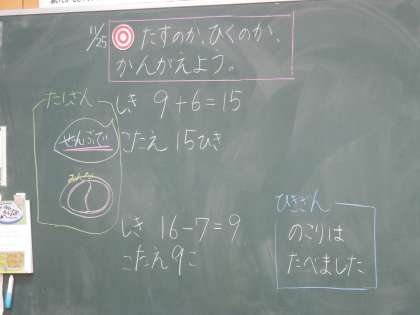 11/25
たすのか、ひくのか、
かんがえよう。
たしざん
しき 9+6=15
ぜんぶで
こたえ 15ひき
みんな
しき 16-7=9
こたえ 9こ
ひきざん
のこりは
たべました